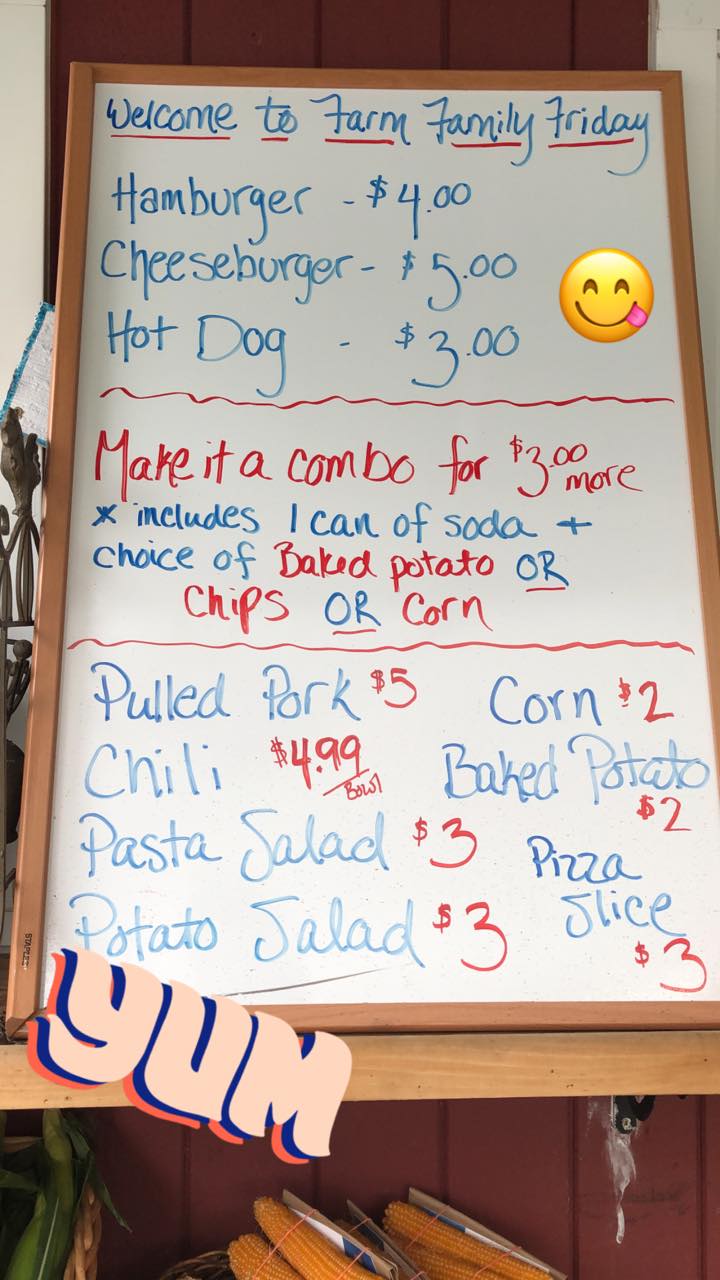 Welcome to Farm Family Friday
Hamburger - $4.00
Cheeseburger - $5.00
Hot Dog - $3.00
Make it a combo for $3.00 more
* includes 1 can of soda +
choice of Baked potato OR
Chips OR Corn
Pulled Pork $5
Chili $4.99
Bowl
Pasta Salad $3
Potato Salad $3
Corn $2
Baked Potato
$2
Pizza
Slice
$3
STAPLES
YUM